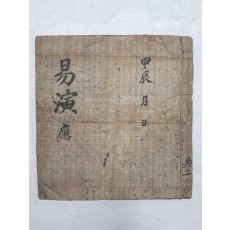 易演 應
甲辰 月 日
共二